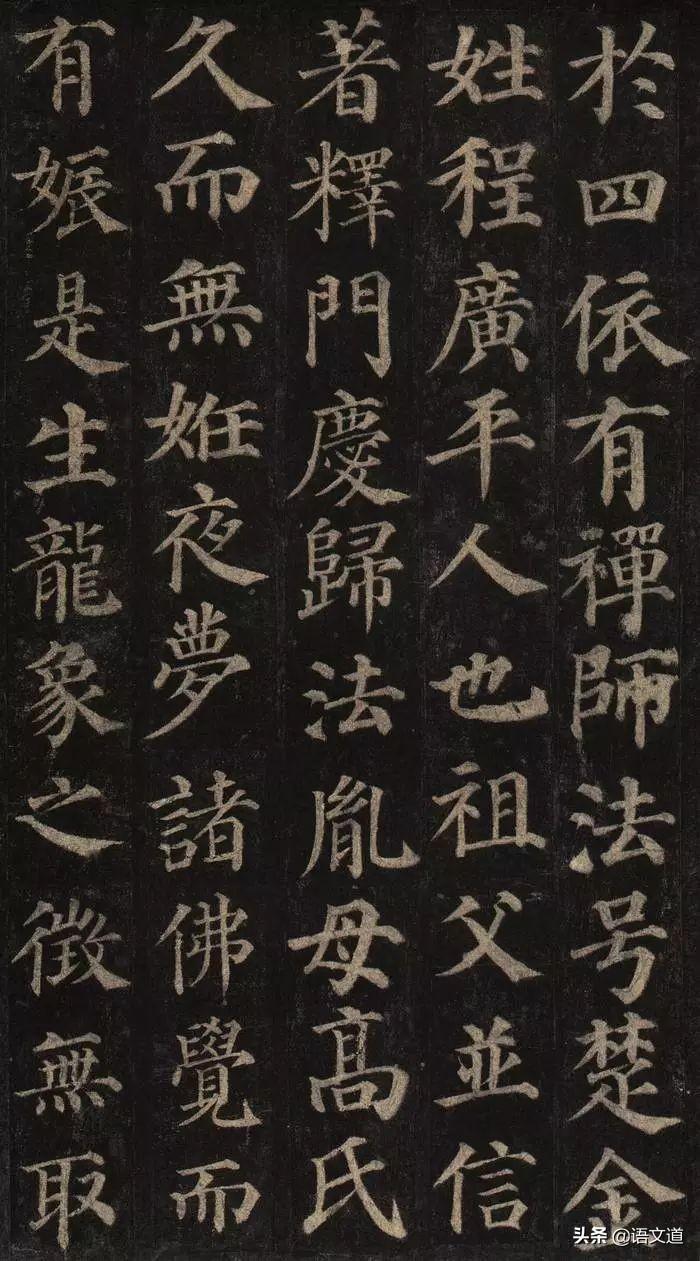 於四依有禪師法号楚金
姓程廣平人也祖父並信
著釋門慶歸法胤母髙氏
久而無姙夜夢諸佛覺而
有娠是生龍象之徵無取
头条 @语文道